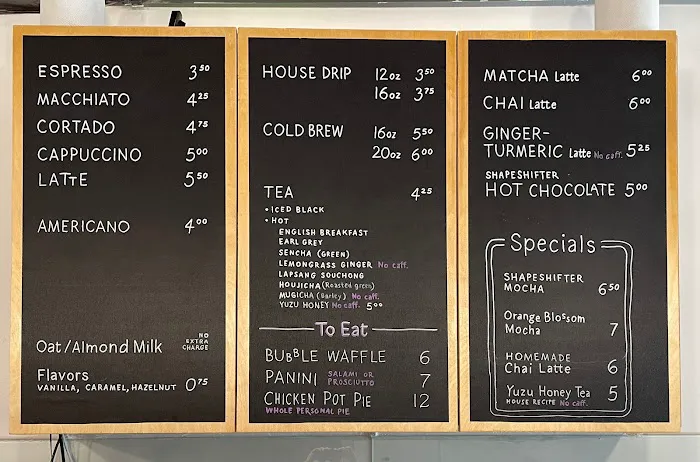 ESPRESSO 3⁵⁰
MACCHIATO 4²⁵
CORTADO 4⁷⁵
CAPPUCCINO 5⁰⁰
LATTE 5⁵⁰
AMERICANO 4⁰⁰
Oat/Almond Milk NO EXTRA CHARGE
Flavors
VANILLA, CARAMEL, HAZELNUT 0⁷⁵
HOUSE DRIP 12oz 3⁵⁰
16oz 3⁷⁵
COLD BREW 16oz 5⁵⁰
20oz 6⁰⁰
TEA 4²⁵
• ICED BLACK
• HOT
ENGLISH BREAKFAST
EARL GREY
SENCHA (GREEN)
LEMONGRASS GINGER No caff.
LAPSANG SOUCHONG
HOUJICHA (Roasted green)
MUGICHA (Barley) No caff.
YUZU HONEY No caff. 5⁰⁰
To Eat
BUBBLE WAFFLE 6
PANINI SALAMI OR PROSCIUTTO 7
CHICKEN POT PIE 12
WHOLE PERSONAL PIE
MATCHA Latte 6⁰⁰
CHAI Latte 6⁰⁰
GINGER-
TURMERIC Latte No caff. 5²⁵
SHAPESHIFTER
HOT CHOCOLATE 5⁰⁰
Specials
SHAPESHIFTER
MOCHA 6⁵⁰
Orange Blossom
Mocha 7
HOMEMADE
Chai Latte 6
Yuzu Honey Tea 5
HOUSE RECIPE No caff.